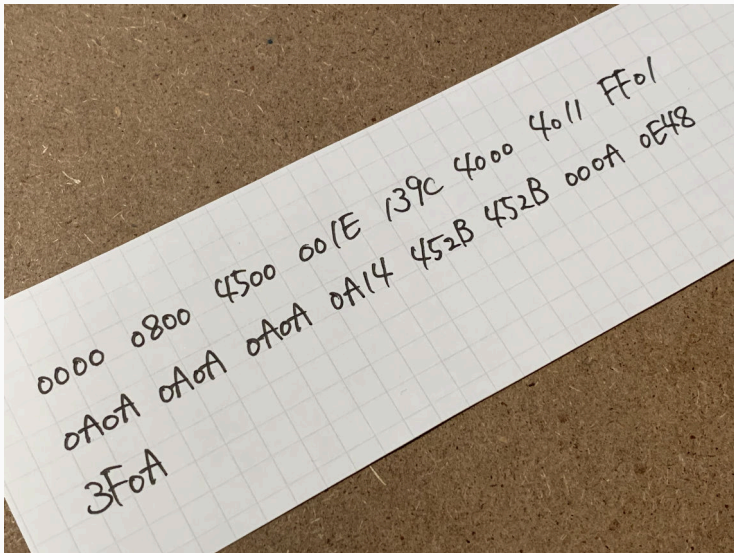 0000 0800 4500 001E 139C 4000 4011 FF01
0A0A 0A0A 0A0A 0A14 452B 452B 000A 0E48
3F0A